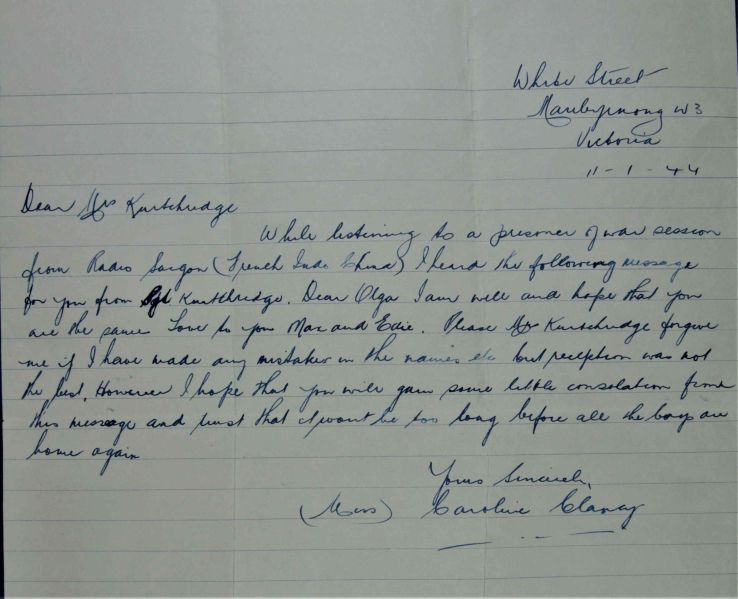 White Street
Maribyrnong W3
Victoria
11-1-44
Dear Mrs Kurtchridge
While listening to a prisoner of war session
from Radio Saigon (French Indo China) I heard the following message
for you from Sgt Kurtchridge. Dear Olga I am well and hope that you
are the same Love to you Mac and Edie. Please Mrs Kurtchridge forgive
me if I have made any mistakes in the names etc but reception was not
the best. However I hope that you will gain some little consolation from
this message and trust that it wont be too long before all the boys are
home again
Yours Sincerely,
(Miss) Caroline Clancy